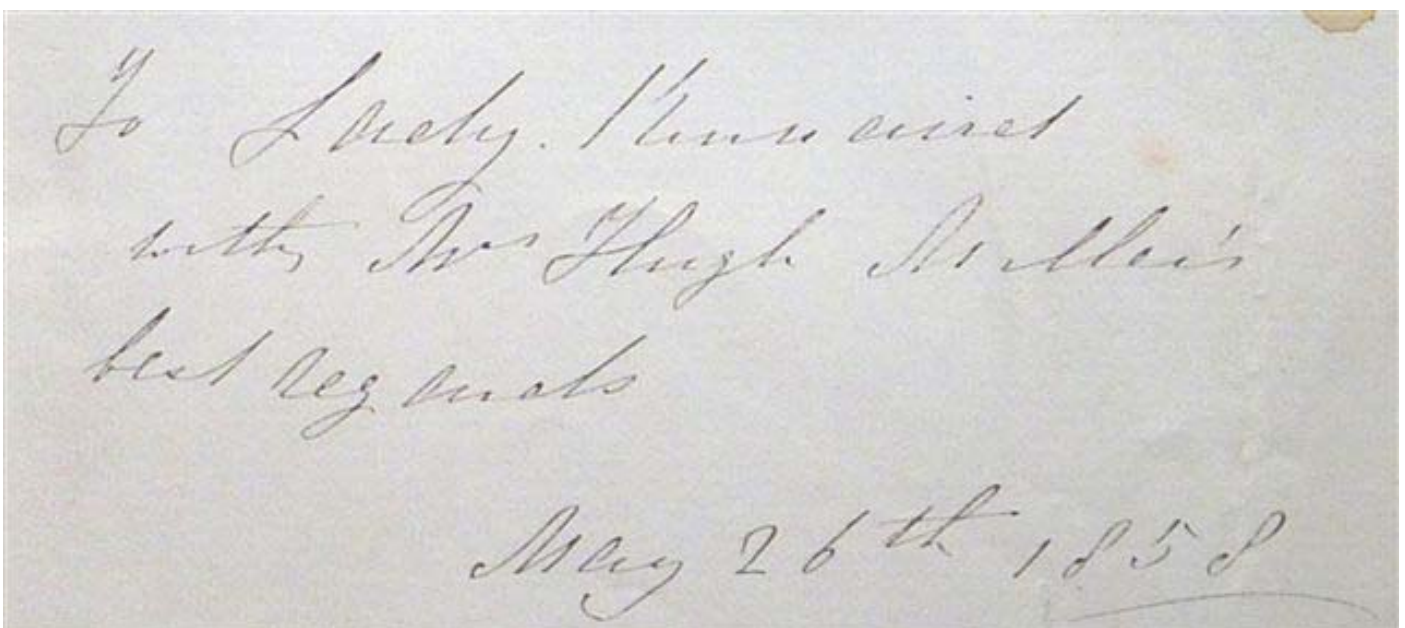 To Lady Kinnaird
with Mrs Hugh Miller's
best regards
May 26th 1858